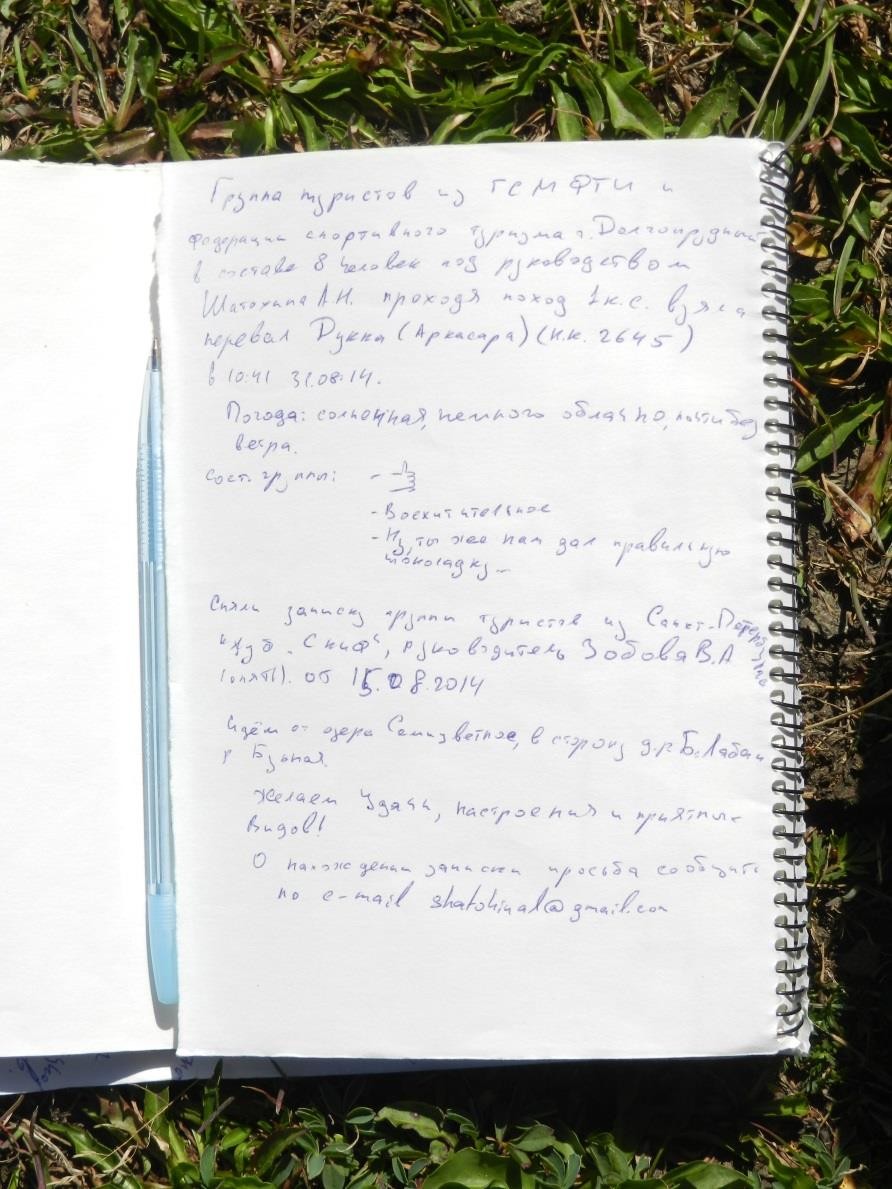 Группа туристов из ТС МФТИ и
федерации спортивного туризма г. Долгопрудный
в составе 8 человек под руководством
Шатохина А.Н. проходя поход 1 к.с. взяла
перевал Дукка (Аркасара) (Н.К. 2645)
в 10:41 31.08.14.
Погода: солнечная, немного облачно, почти без
ветра.
Сост. группы:
- Восхитительное
- Ну ты же нам дал правильную
шоколадку...
Сняли записку группы туристов из Санкт-Петербурга
"Скиф", руководитель Зобова В.А
(опять). от 15.08.2014
Идём от озера Самоцветное, в сторону д.р. Б. Лабаи
р
Желаем удачи, настроения и приятных
видов!
О нахождении записки просьба сообщить
по e-mail shatohinal@gmail.com